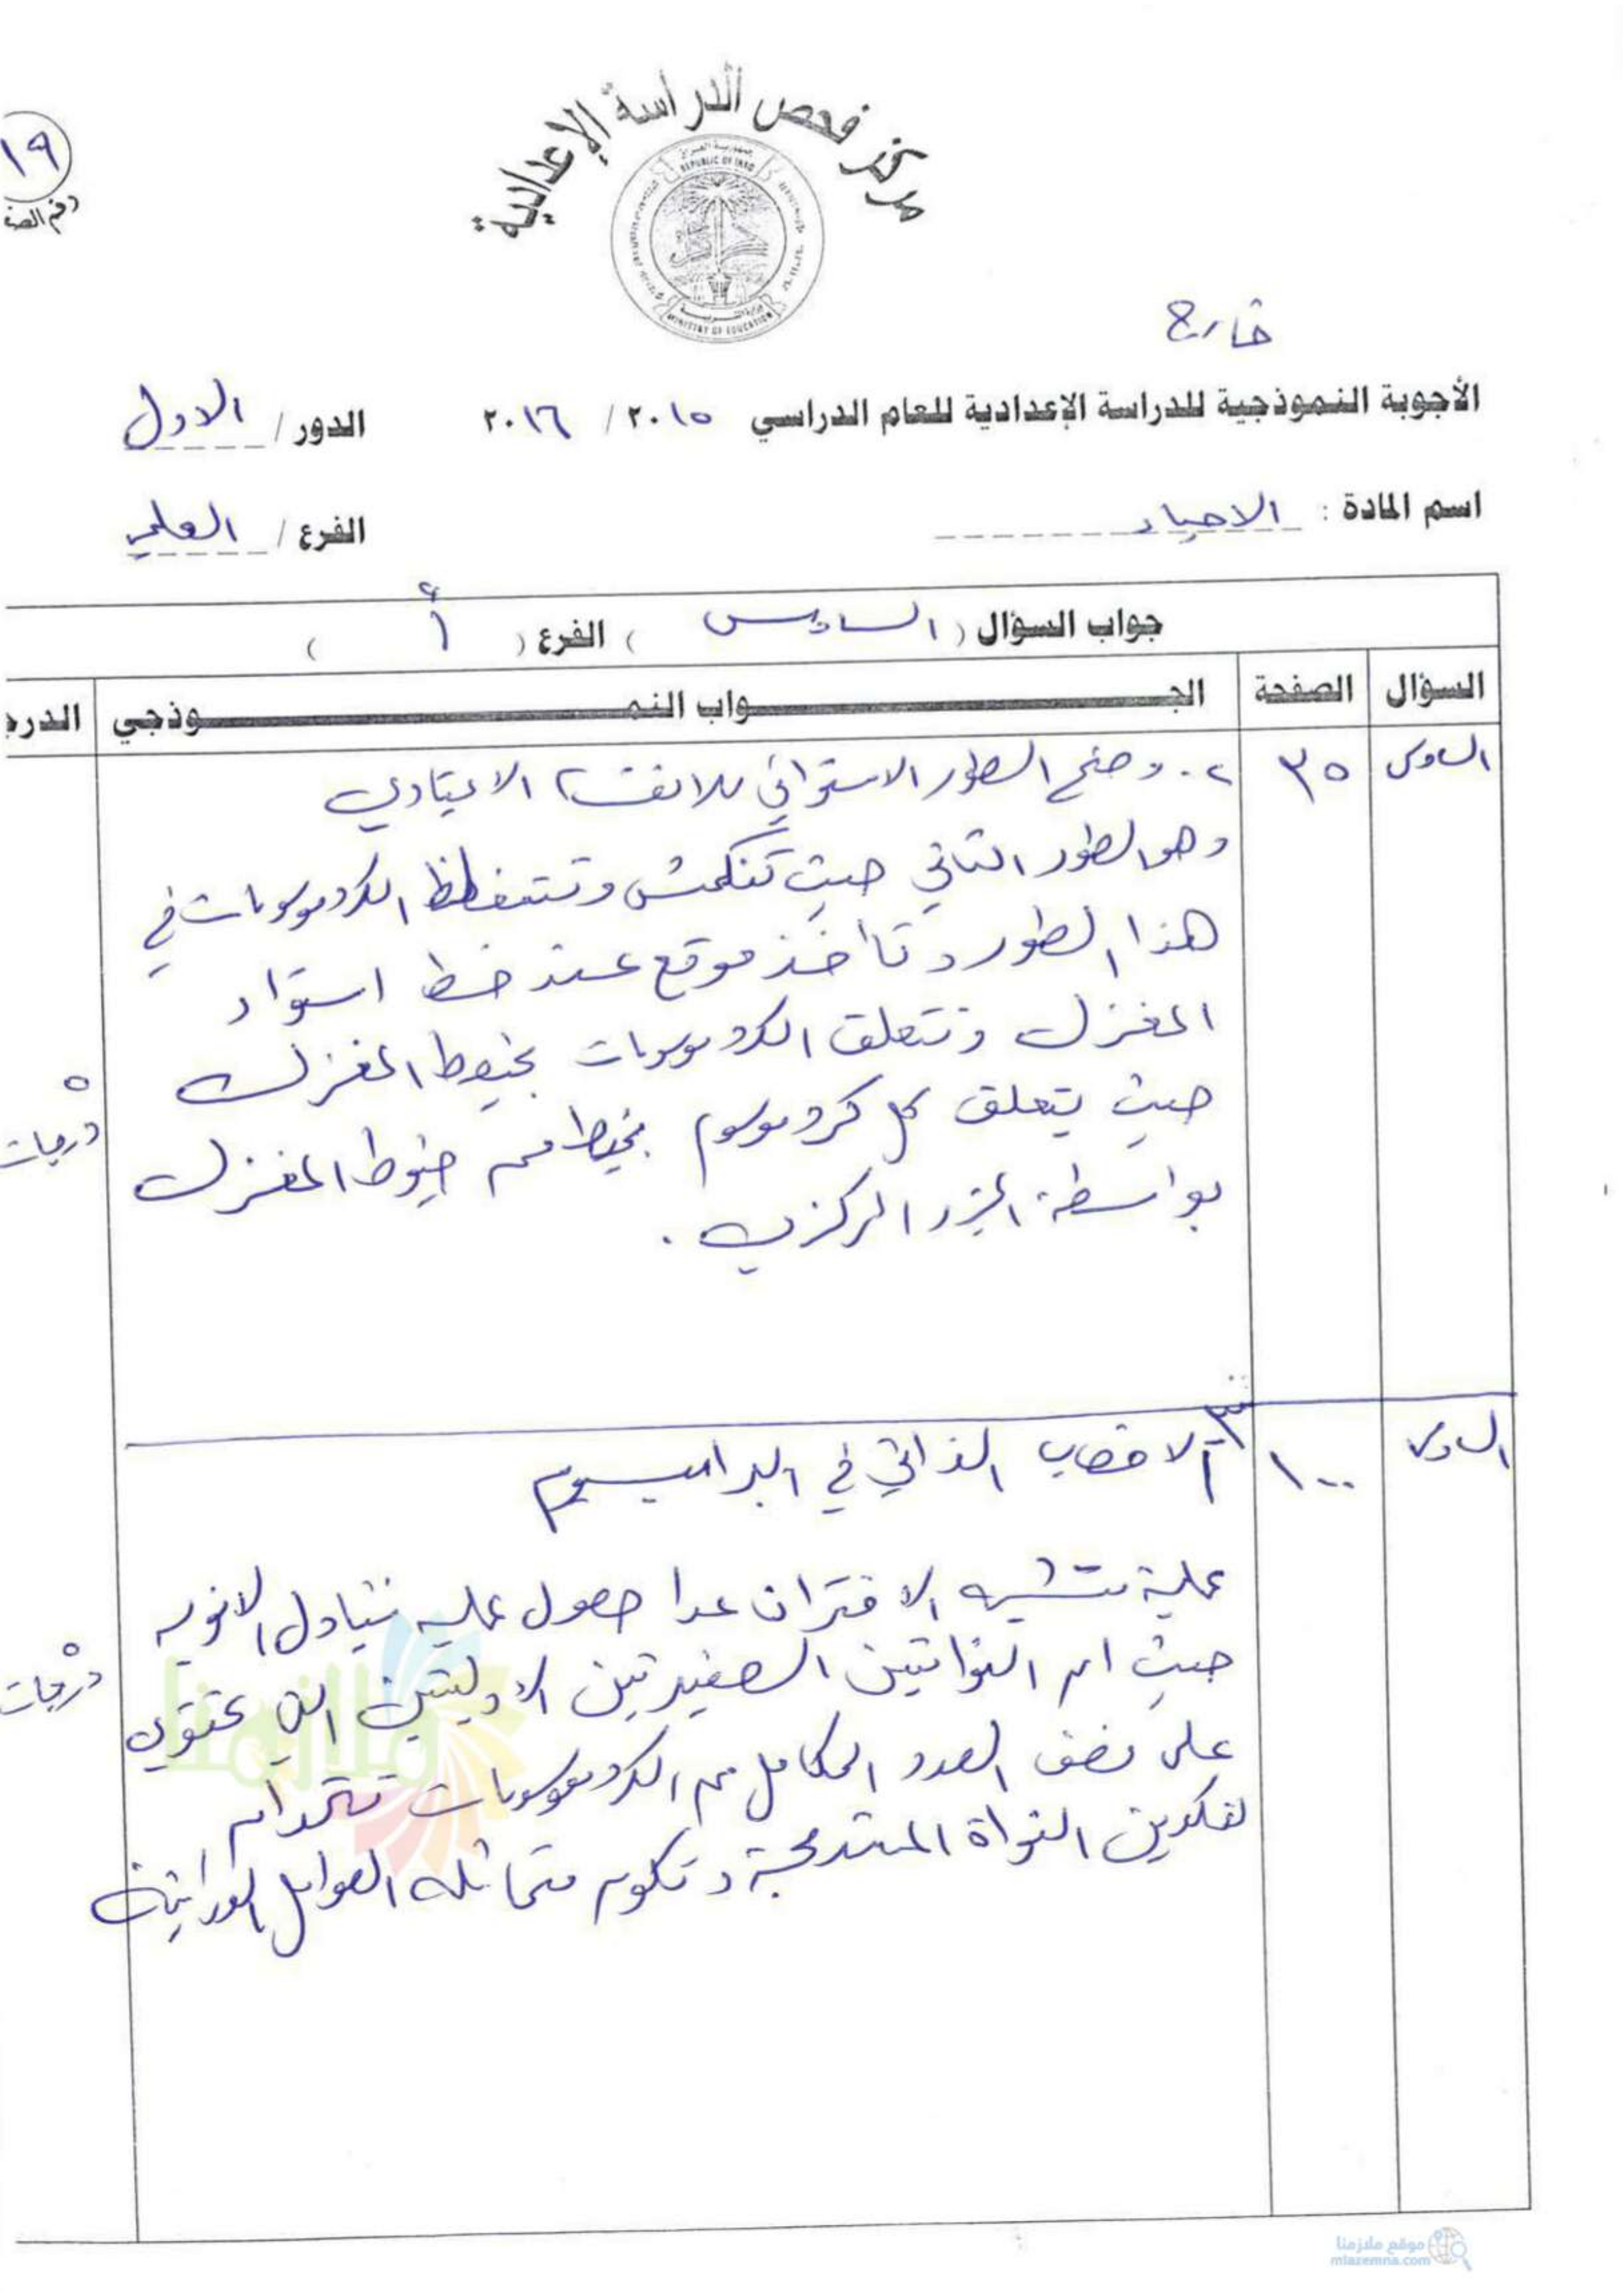 مركز فحص الدراسة الإعدادية
جمهورية العراق
REPUBLIC OF IRAQ
MINISTRY OF EDUCATION
١٩
رقم الصف
خارج
الأجوبة النموذجية للدراسة الإعدادية للعام الدراسي ٢٠١٥ / ٢٠١٦ الدور / الاول
اسم المادة : الاحياء الفرع / العلمي
جواب السؤال ( السادس ) الفرع ( أ )
السؤال الصفحة الجــواب النمــوذجي الدرجـ
السادس ٣٥ ٢. وضح الطور الاستوائي للانقسام الاعتيادي
وهو الطور الثاني حيث تنكمش وتتغلظ الكروموسومات في
هذا الطور وتأخذ موقع عند خط استواء
المغزل وتتعلق الكروموسومات بخيوط المغزل
حيث يتعلق كل كروموسوم بخيط من خيوط المغزل
بواسطة الجزء المركزي .
٥ درجات
السادس ١٠٠ ٣ الاخصاب الذاتي في البراميسيوم
عملية تشبه الاقتران عدا حصول عملية تبادل الانوية
حيث ان النواتين الصغيرتين الاوليتين التي تحتوي
على نصف العدد الكامل من الكروموسومات تتحدان
لتكوين النواة المندمجة وتكون متماثلة العوامل الوراثية
٥ درجات
ملازمنا
موقع ملازمنا
mlazemna.com